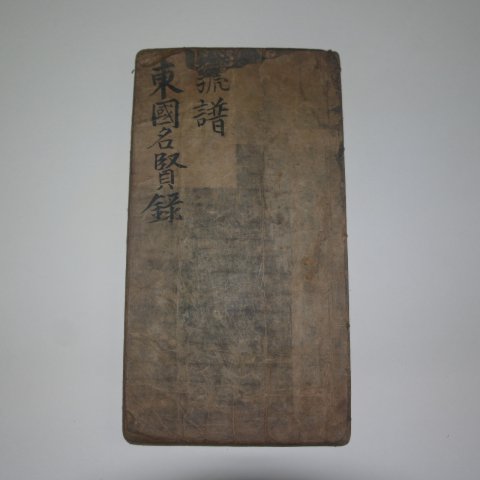 號譜
東國名賢錄